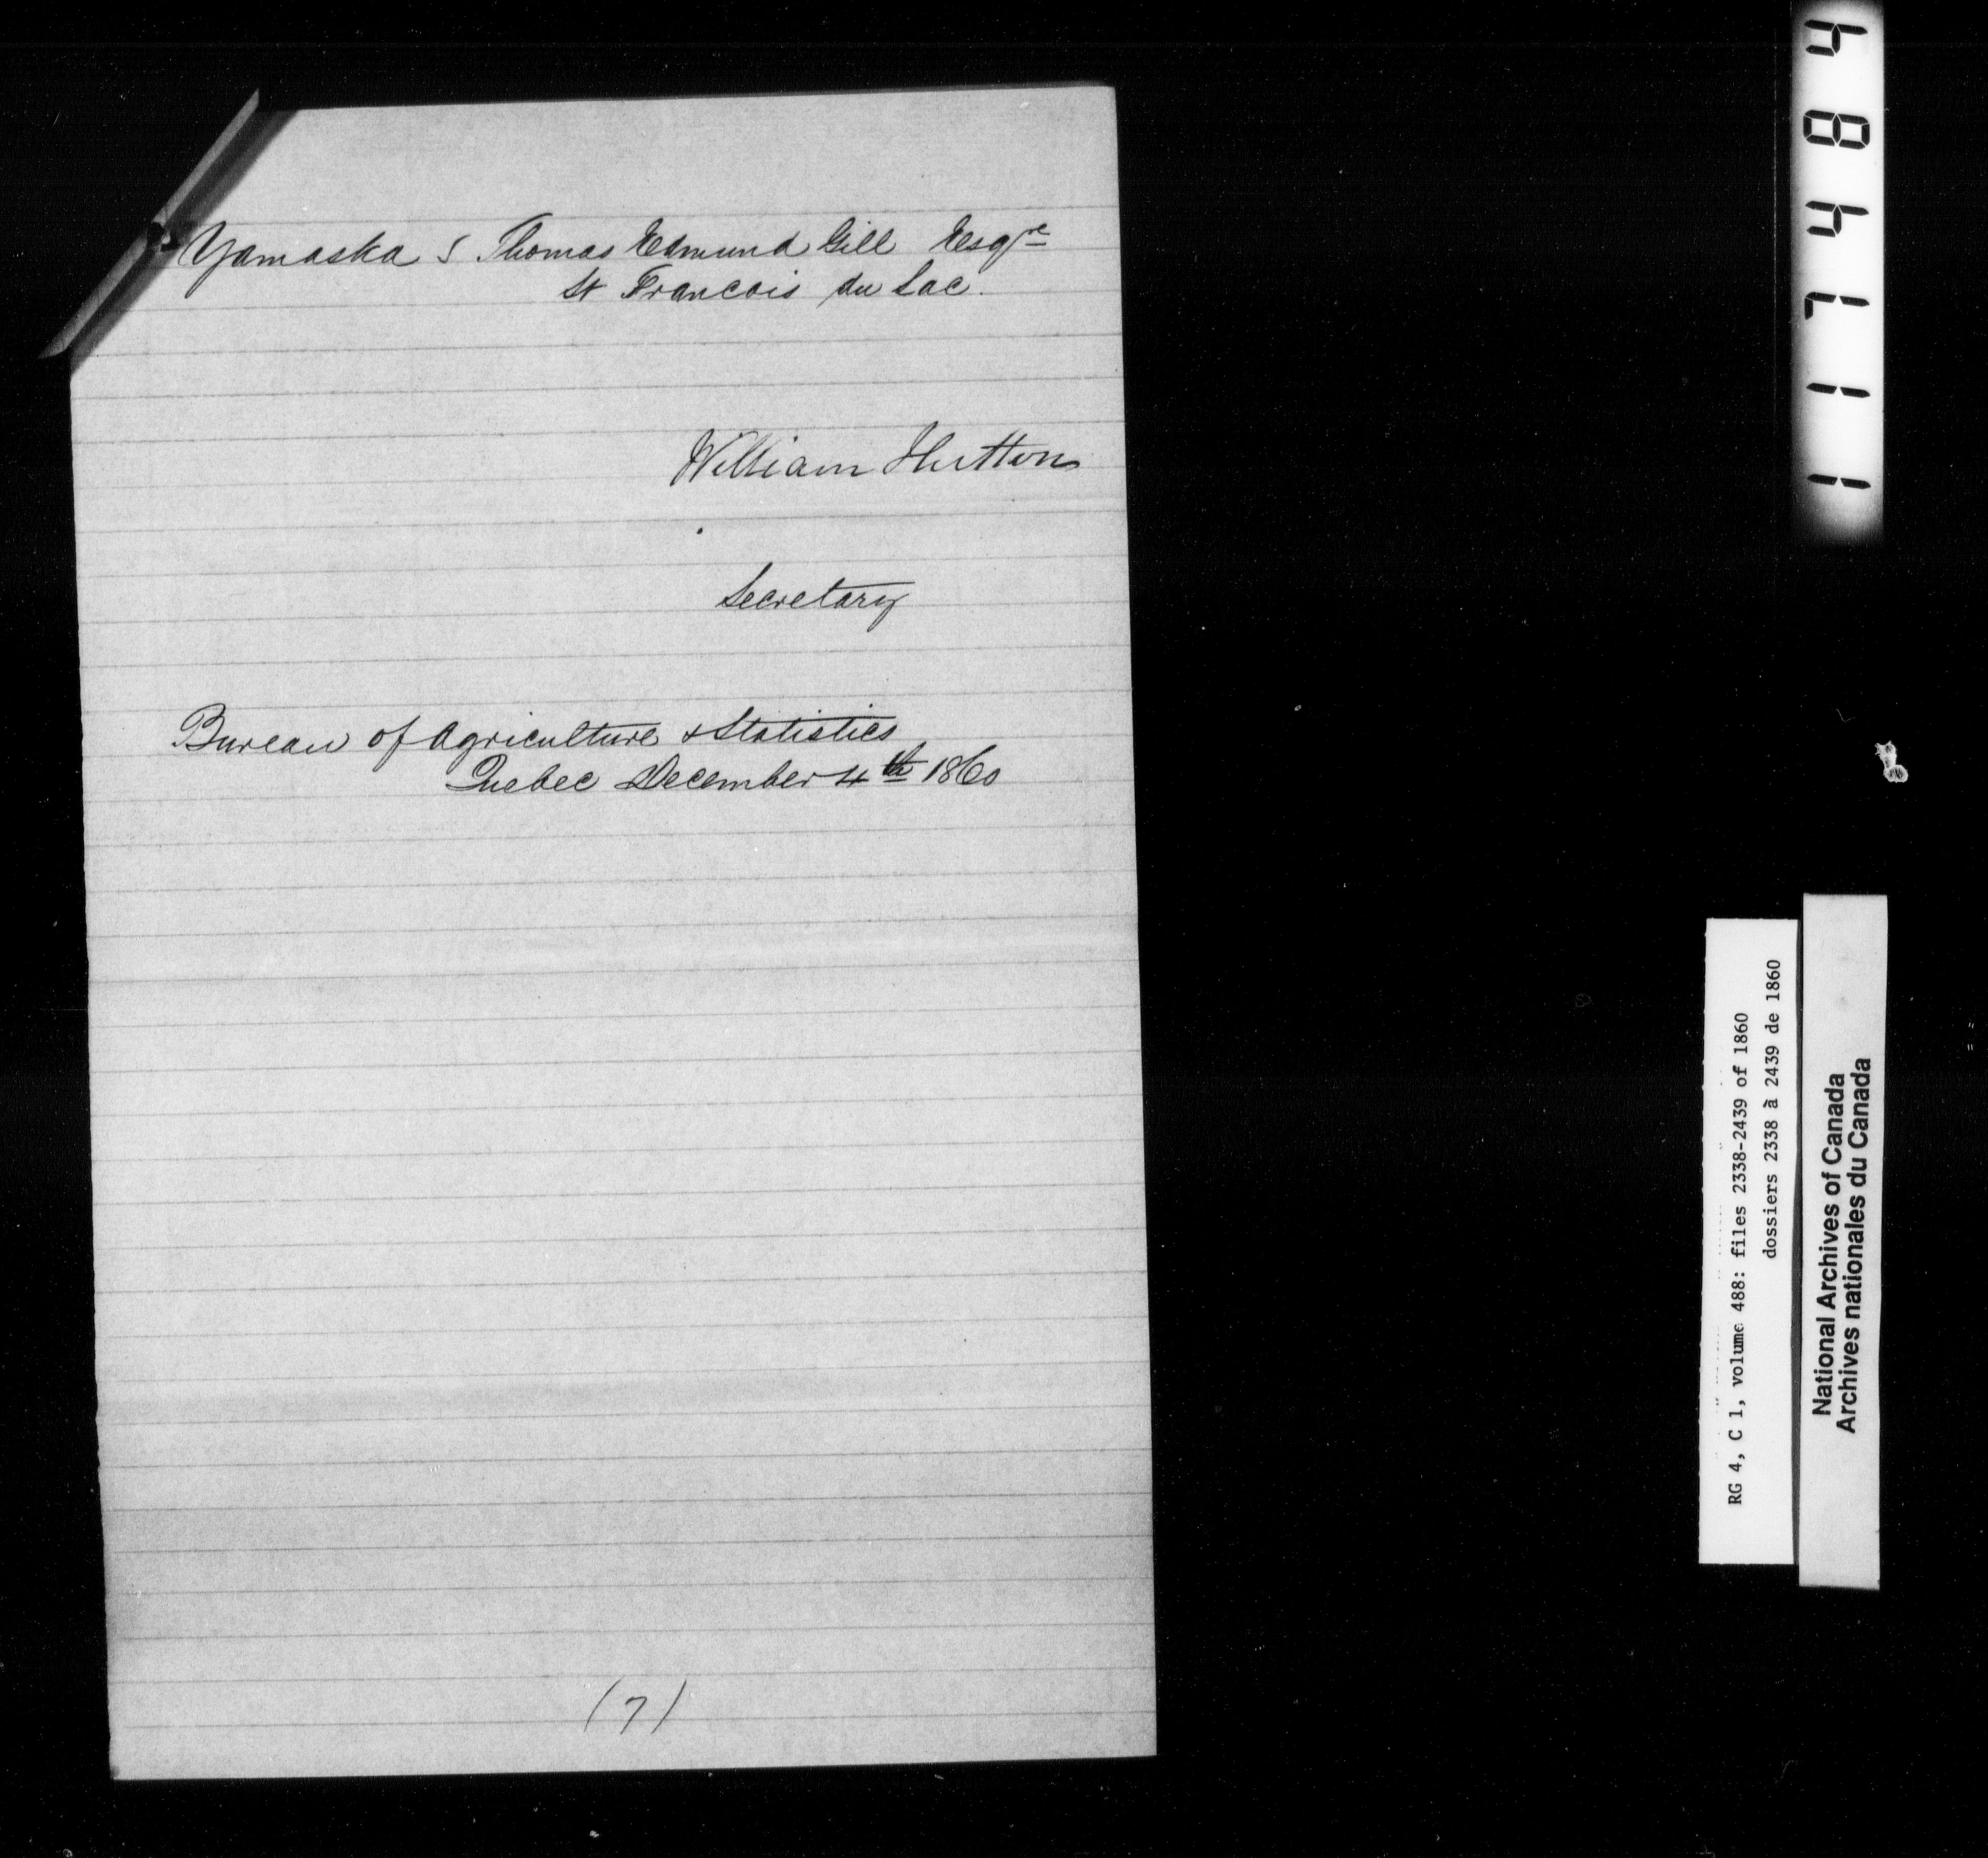 Yamaska S Thomas Edmund Gill Esqre
St Francois du Lac.
William Hutton
Secretary
Bureau of Agriculture & Statistics
Quebec December 4th 1860
(7)
117484
RG 4, C 1, volume 488: files 2338-2439 of 1860
dossiers 2338 à 2439 de 1860
National Archives of Canada
Archives nationales du Canada